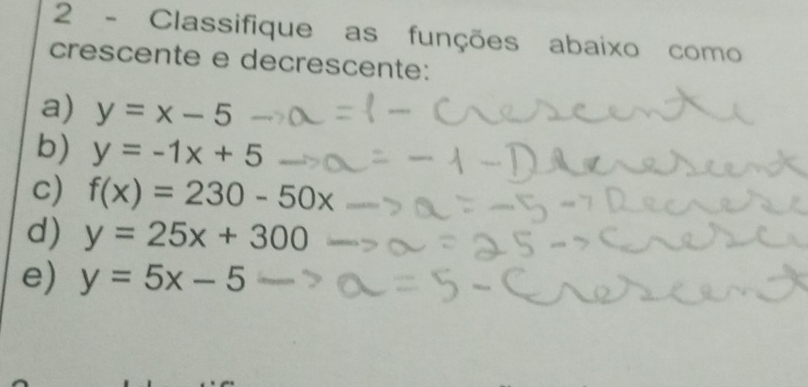 2 - Classifique as funções abaixo como
crescente e decrescente:
a) y = x – 5 -> a = 1 - Crescente
b) y = -1x + 5 -> a = - 1 - Decrescent
c) f(x) = 230 - 50x -> a = -5 -> Decresc
d) y = 25x + 300 -> a = 25 -> Cresce
e) y = 5x – 5 -> a = 5 - Crescent